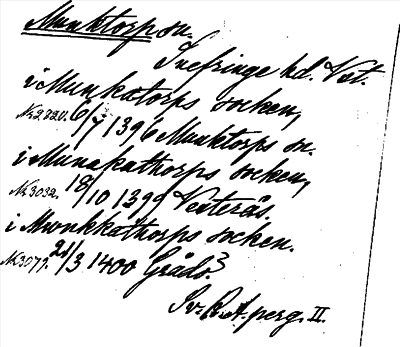 Munktorp sn.
Snefringe hd. Vst.
i Munkatorps socken,
N. 2820. 6/7 1396 Munktorps sn.
i Munakathorps socken,
N. 3032. 18/10 1399 Vesterås.
i Mwnkkathorps socken.
N. 3079. 21/3 1400 Grådö.
Sv. R. A. perg. II.